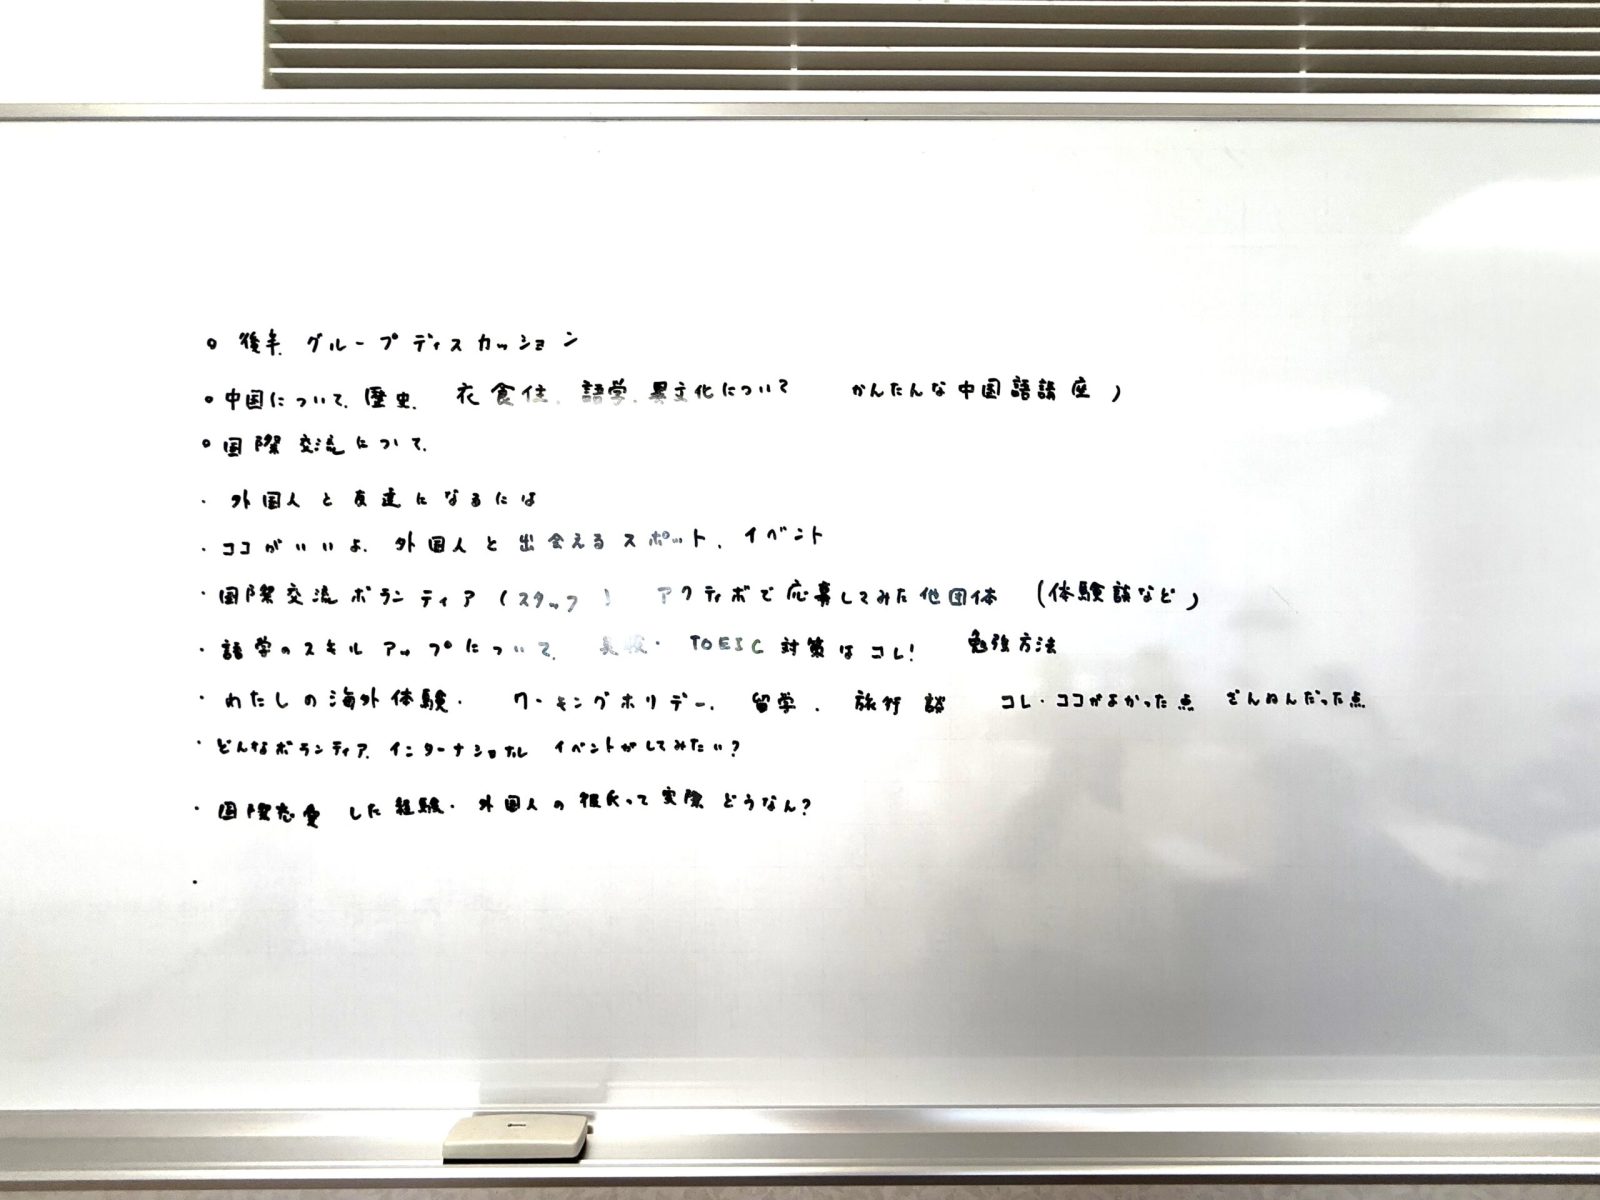 ○ 後半 グループディスカッション
○ 中国について、歴史、 衣食住、語学、異文化について かんたんな中国語講座)
○ 国際交流について、
・ 外国人と友達になるには
・ ココがいいよ、外国人と出会えるスポット、イベント
・ 国際交流ボランティア(スタッフ) アクティボで応募してみた他団体 (体験談など)
・ 語学のスキルアップについて、英検・ TOEIC対策はコレ! 勉強方法
・ わたしの海外体験・ ワーキングホリデー、 留学、 旅行談 コレ・ココがよかった点 ざんねんだった点
・ どんなボランティア、インターナショナル イベントがしてみたい?
・ 国際恋愛 した経験・ 外国人の彼氏って実際どうなん?
・